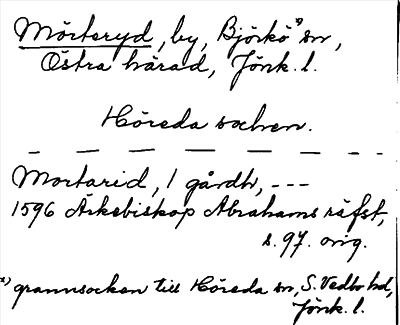 Mörteryd, by, Björkö x) sn,
Östra härad, Jönk. l.
Höreda socken.
Mortarid, 1 gårdh, ---
1596 Ärkebiskop Abrahams räfst,
s. 97. orig.
x) grannsocken till Höreda sn, S. Vedbo hd,
Jönk. l.